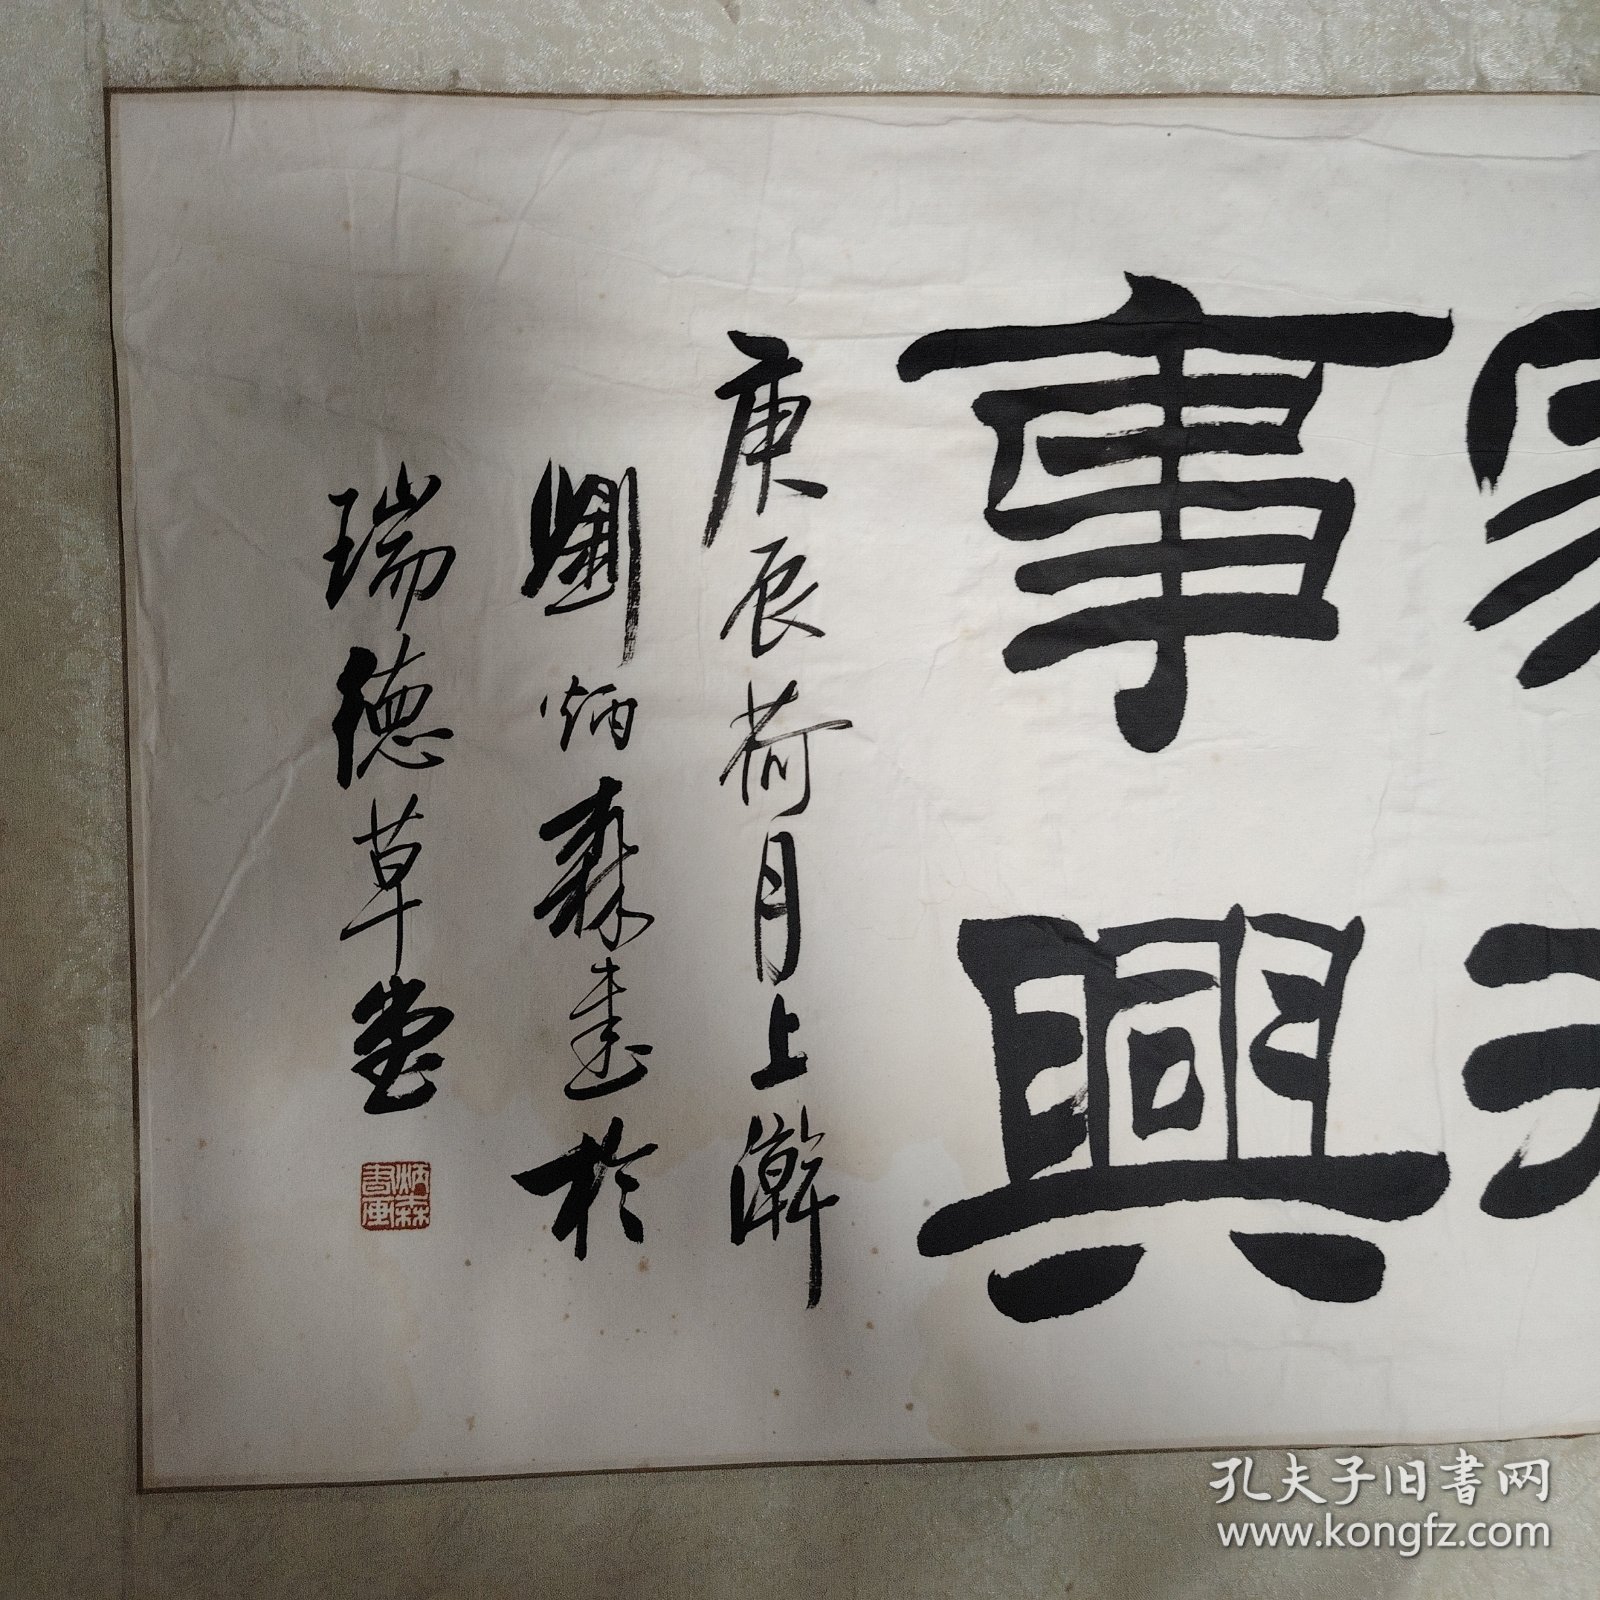 事興
庚辰荷月上澣
劉炳森書於
瑞德草堂
炳森
書画
孔夫子旧书网
www.kongfz.com